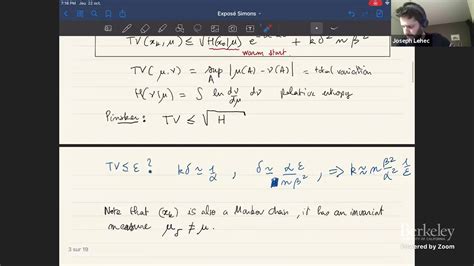 7:16 PM Jeu. 22 oct.
Exposé Simons
Joseph Lehec
TV(x_k, μ) ≤ √H(x_0|μ) e + k δ² n β²
warm start
TV(μ, ν) = sup_A |μ(A) - ν(A)| = total variation
H(ν|μ) = ∫ ln dν/dμ dν relative entropy
Pinsker: TV ≤ √H
TV ≤ ε ? kδ ≃ 1/α , δ ≃ αε/nβ² , ⇒ k ≃ n β²/α² 1/ε
Note that (x_k) is also a Markov chain, it has an invariant
measure μ_δ ≠ μ.
3 sur 19
Berkeley
UNIVERSITY OF CALIFORNIA
Powered by Zoom